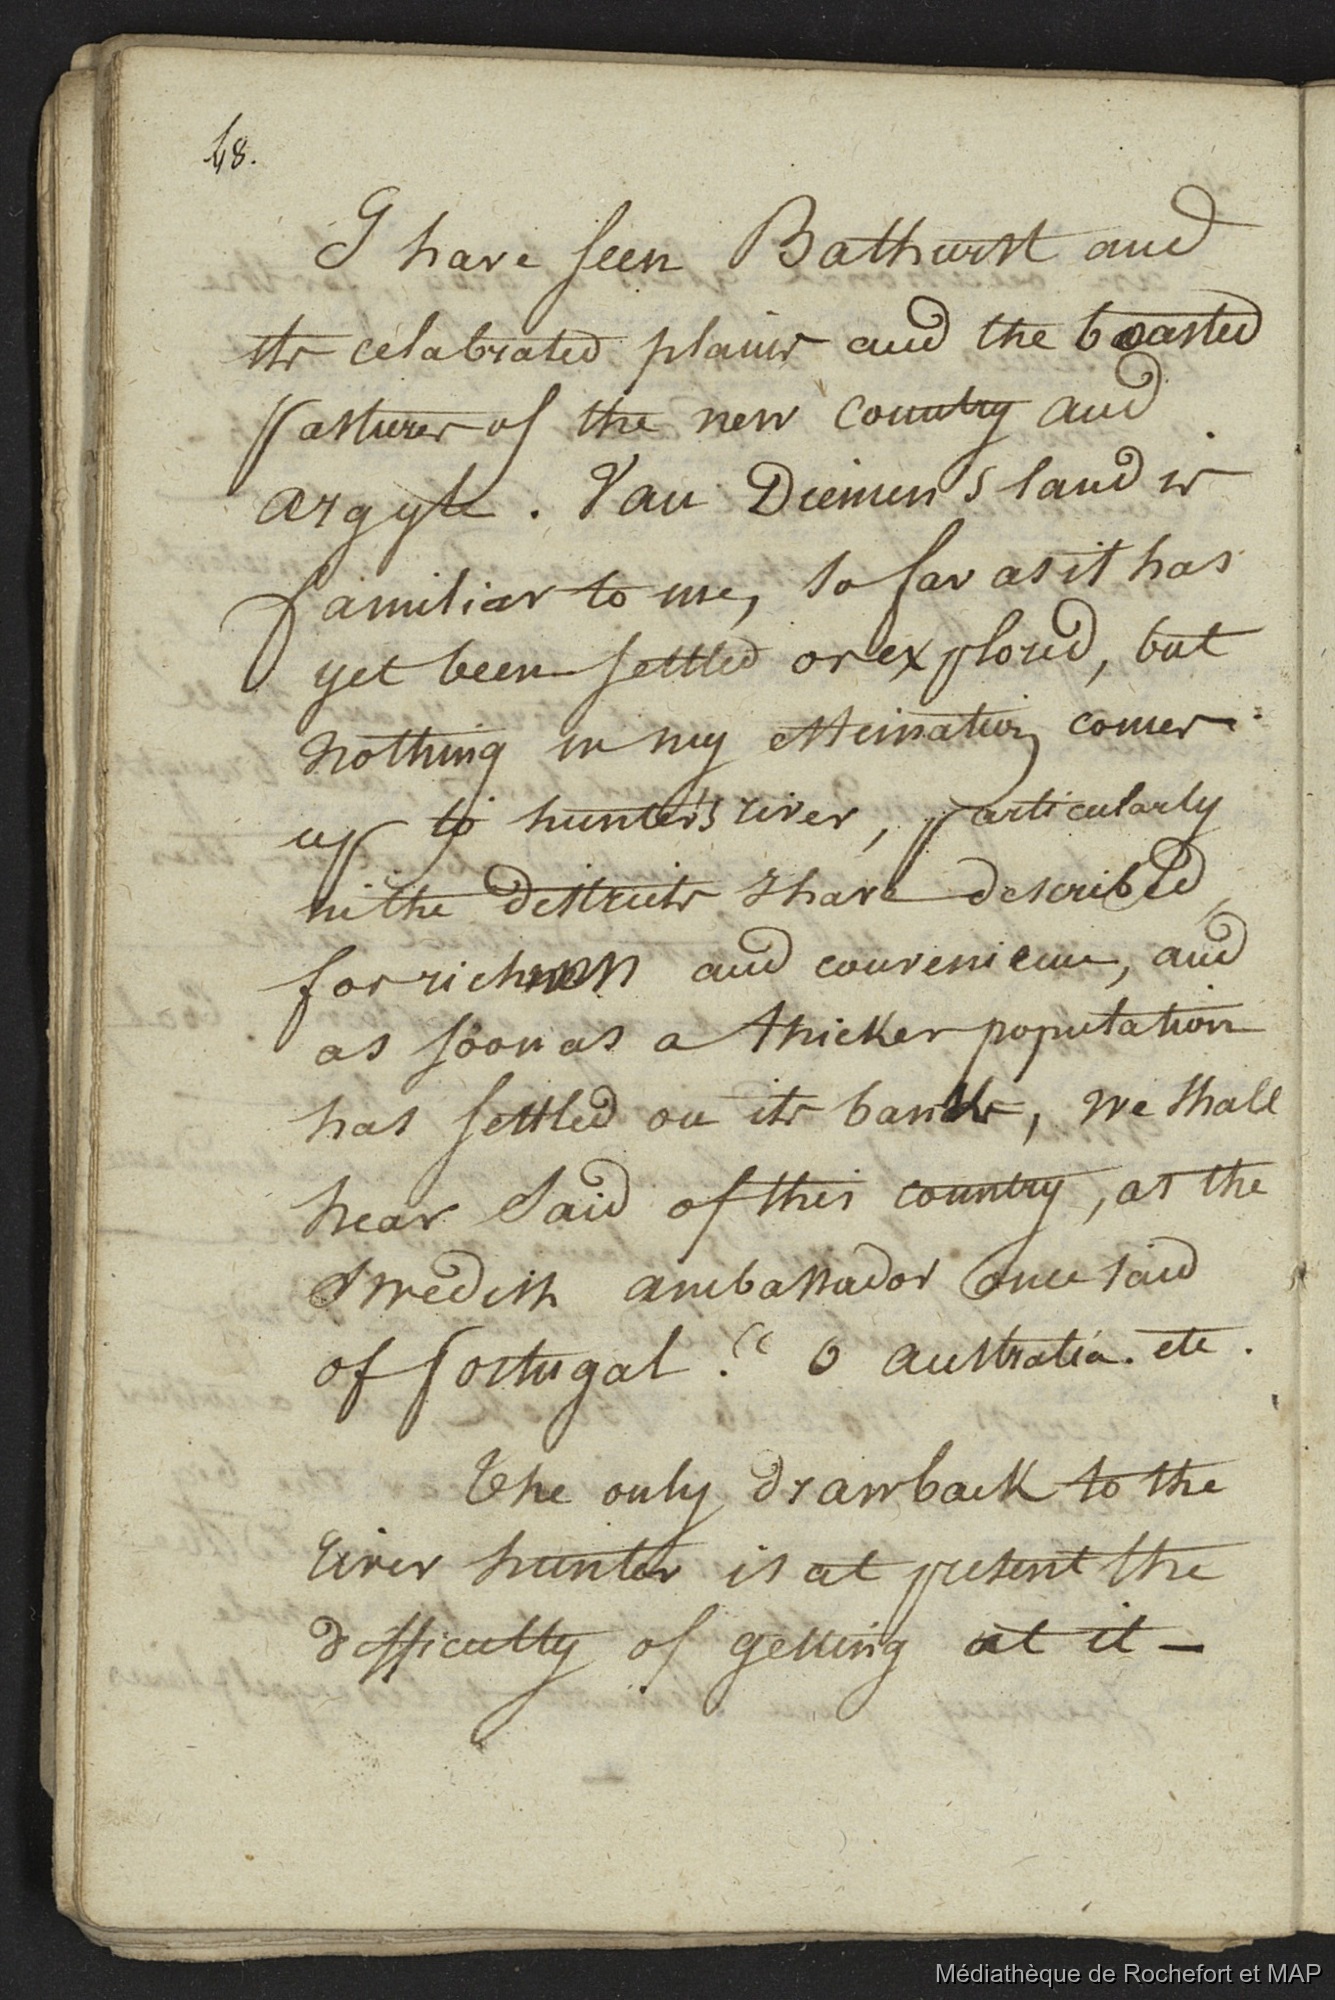 48.
I have seen Bathurst and
its celabrated plains and the boasted
pastures of the new country and
argyle. Van Diemen's land is
familiar to me, so far as it has
yet been settled or explored, but
nothing in my estimation comes
up to hunter's river, particularly
in the districts I have described,
for richness and convenience, and
as soon as a thicker population
has settled on its banks, we shall
hear said of this country, as the
Swedish ambassador once said
of portugal. “ O australia. etc.
The only drawback to the
river hunter is at present the
difficulty of getting at it —
Médiathèque de Rochefort et MAP